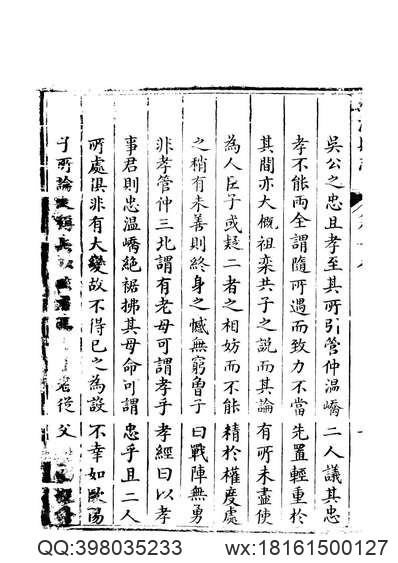 吳公之忠且孝至其所引管仲溫嶠二人議其忠
孝不能兩全謂隨所遇而致力不當先置輕重於
其間亦大概祖欒共子之說而其論有所未盡使
為人臣子或疑二者之相妨而不能精於權度處
之稍有未善則終身之憾無窮魯子曰戰陣無勇
非孝管仲三北謂有老母可謂孝乎孝經曰以孝
事君則忠溫嶠絕裾拂其母命可謂忠乎且二人
所處俱非有大變故不得已之為設不幸如歐陽
子所論
從父
QQ:398035233
wx:18161500127